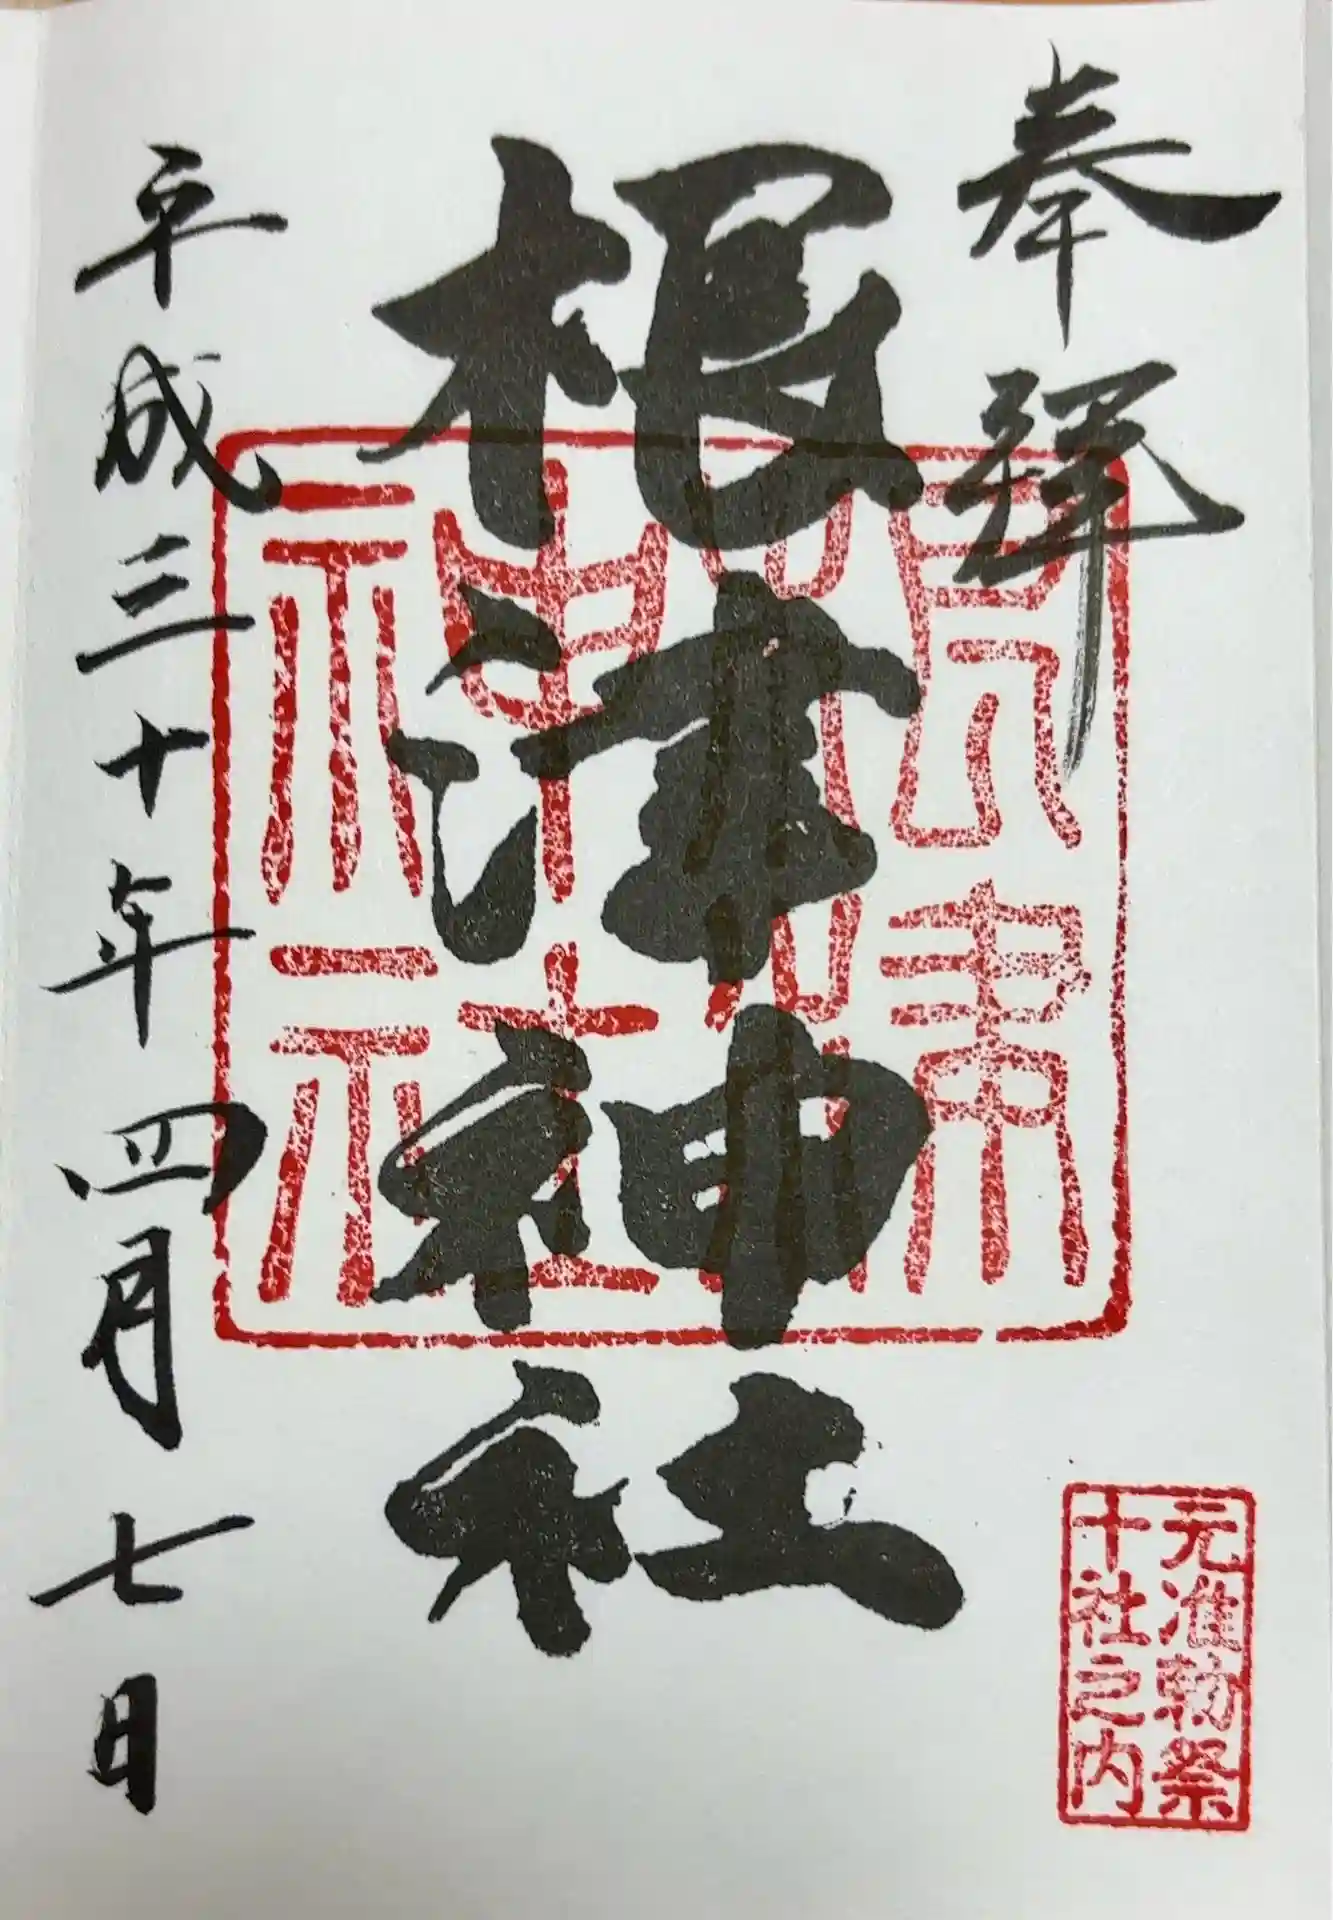 奉拜
根津神社
平成三十年四月七日
元准勅祭
十社之内
根津
神社